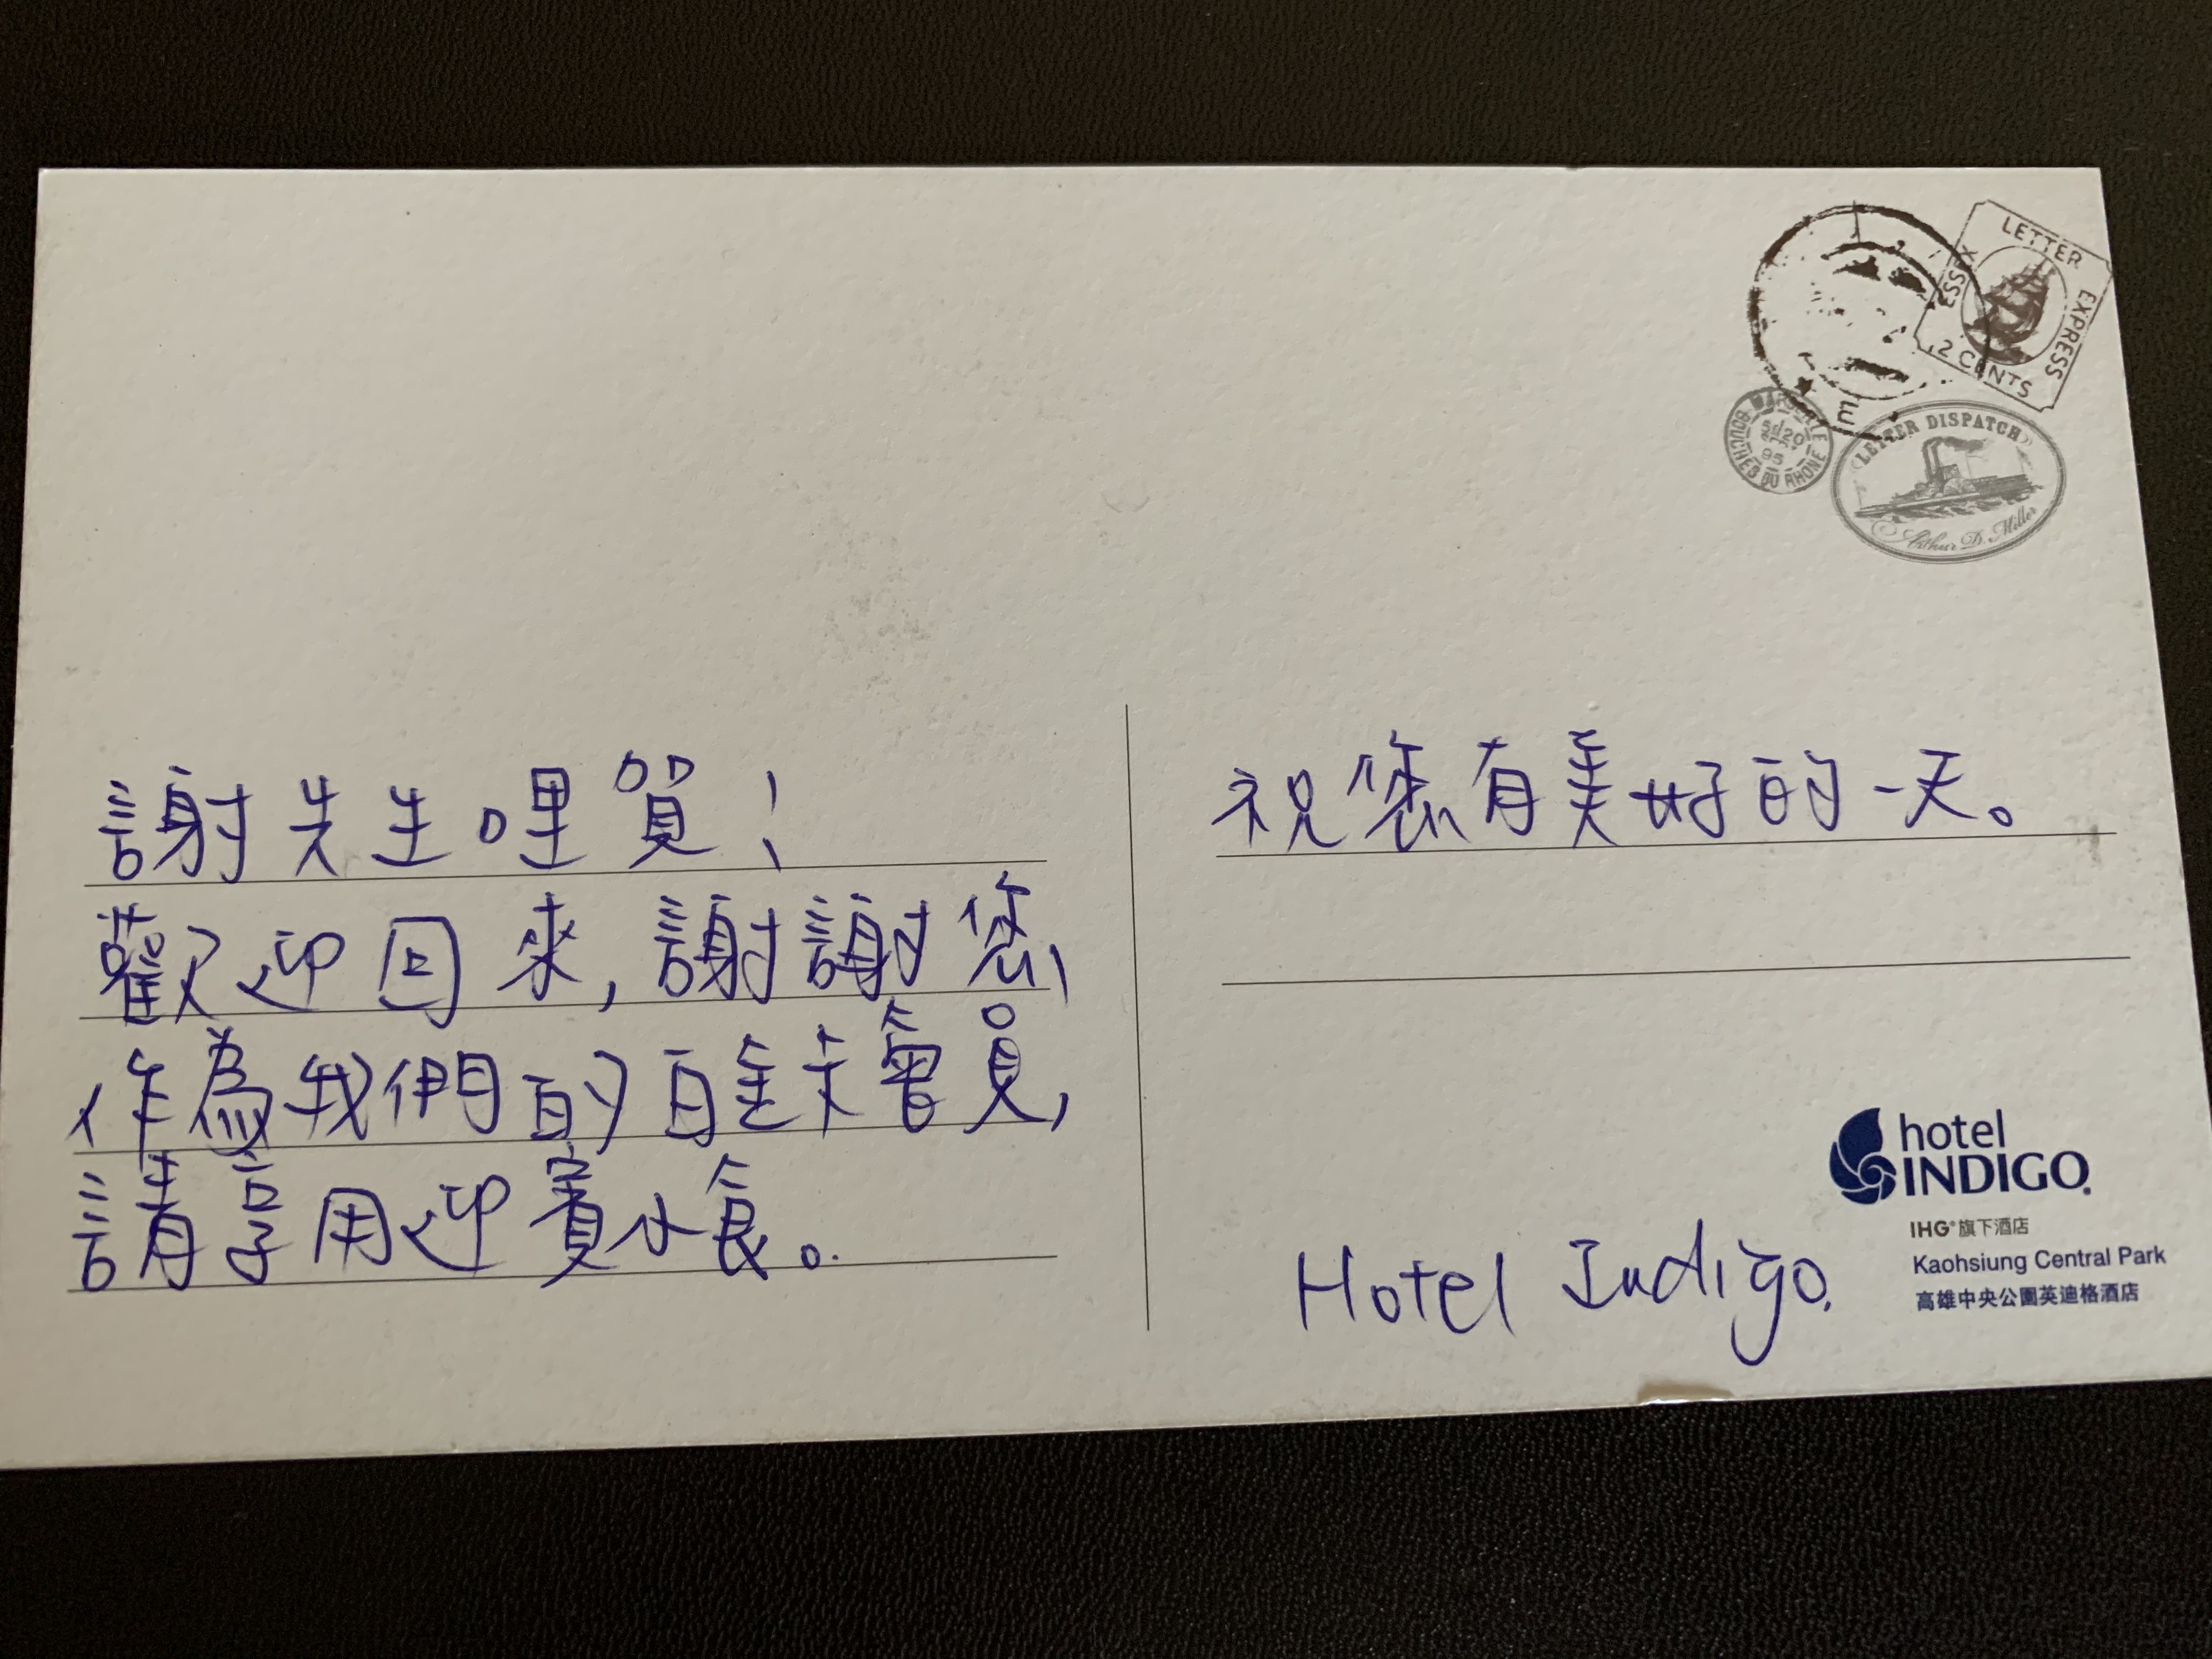 謝先生哩賀!
歡迎回來,謝謝您
作為我們的白金卡會員,
請享用迎賓小食。
祝您有美好的一天。
Hotel Indigo.
hotel
INDIGO
IHG®旗下酒店
Kaohsiung Central Park
高雄中央公園英迪格酒店
ESSEX LETTER EXPRESS
2 CENTS
LETTER DISPATCH
Arthur D. Miller
BOUCHES DU RHONE